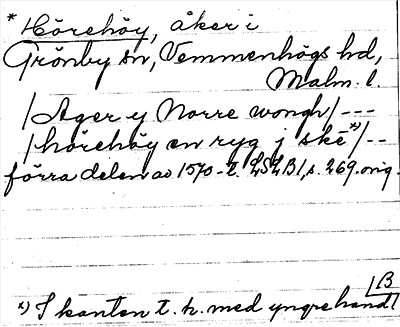 * Hörehöy, åker i
Grönby sn, Vemmenhögs hd,
Malm. l.
/Ager y Norre wongh/ ---
/hörehöy en ryg j skē x)/ --
förra delen av 1570-t. LSLB1, s. 269. orig.
x) I kanten t. h. med yngre hand /B